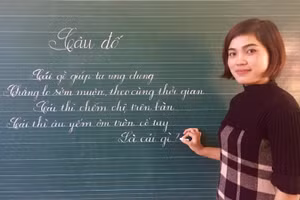 Câu đố
Cái gì giúp ta ung dung
Chẳng lo sớm muộn, theo cùng thời gian
Cái thì chễm chệ trên bàn
Cái thì âu yếm ôm trên cổ tay
Là cái gì?